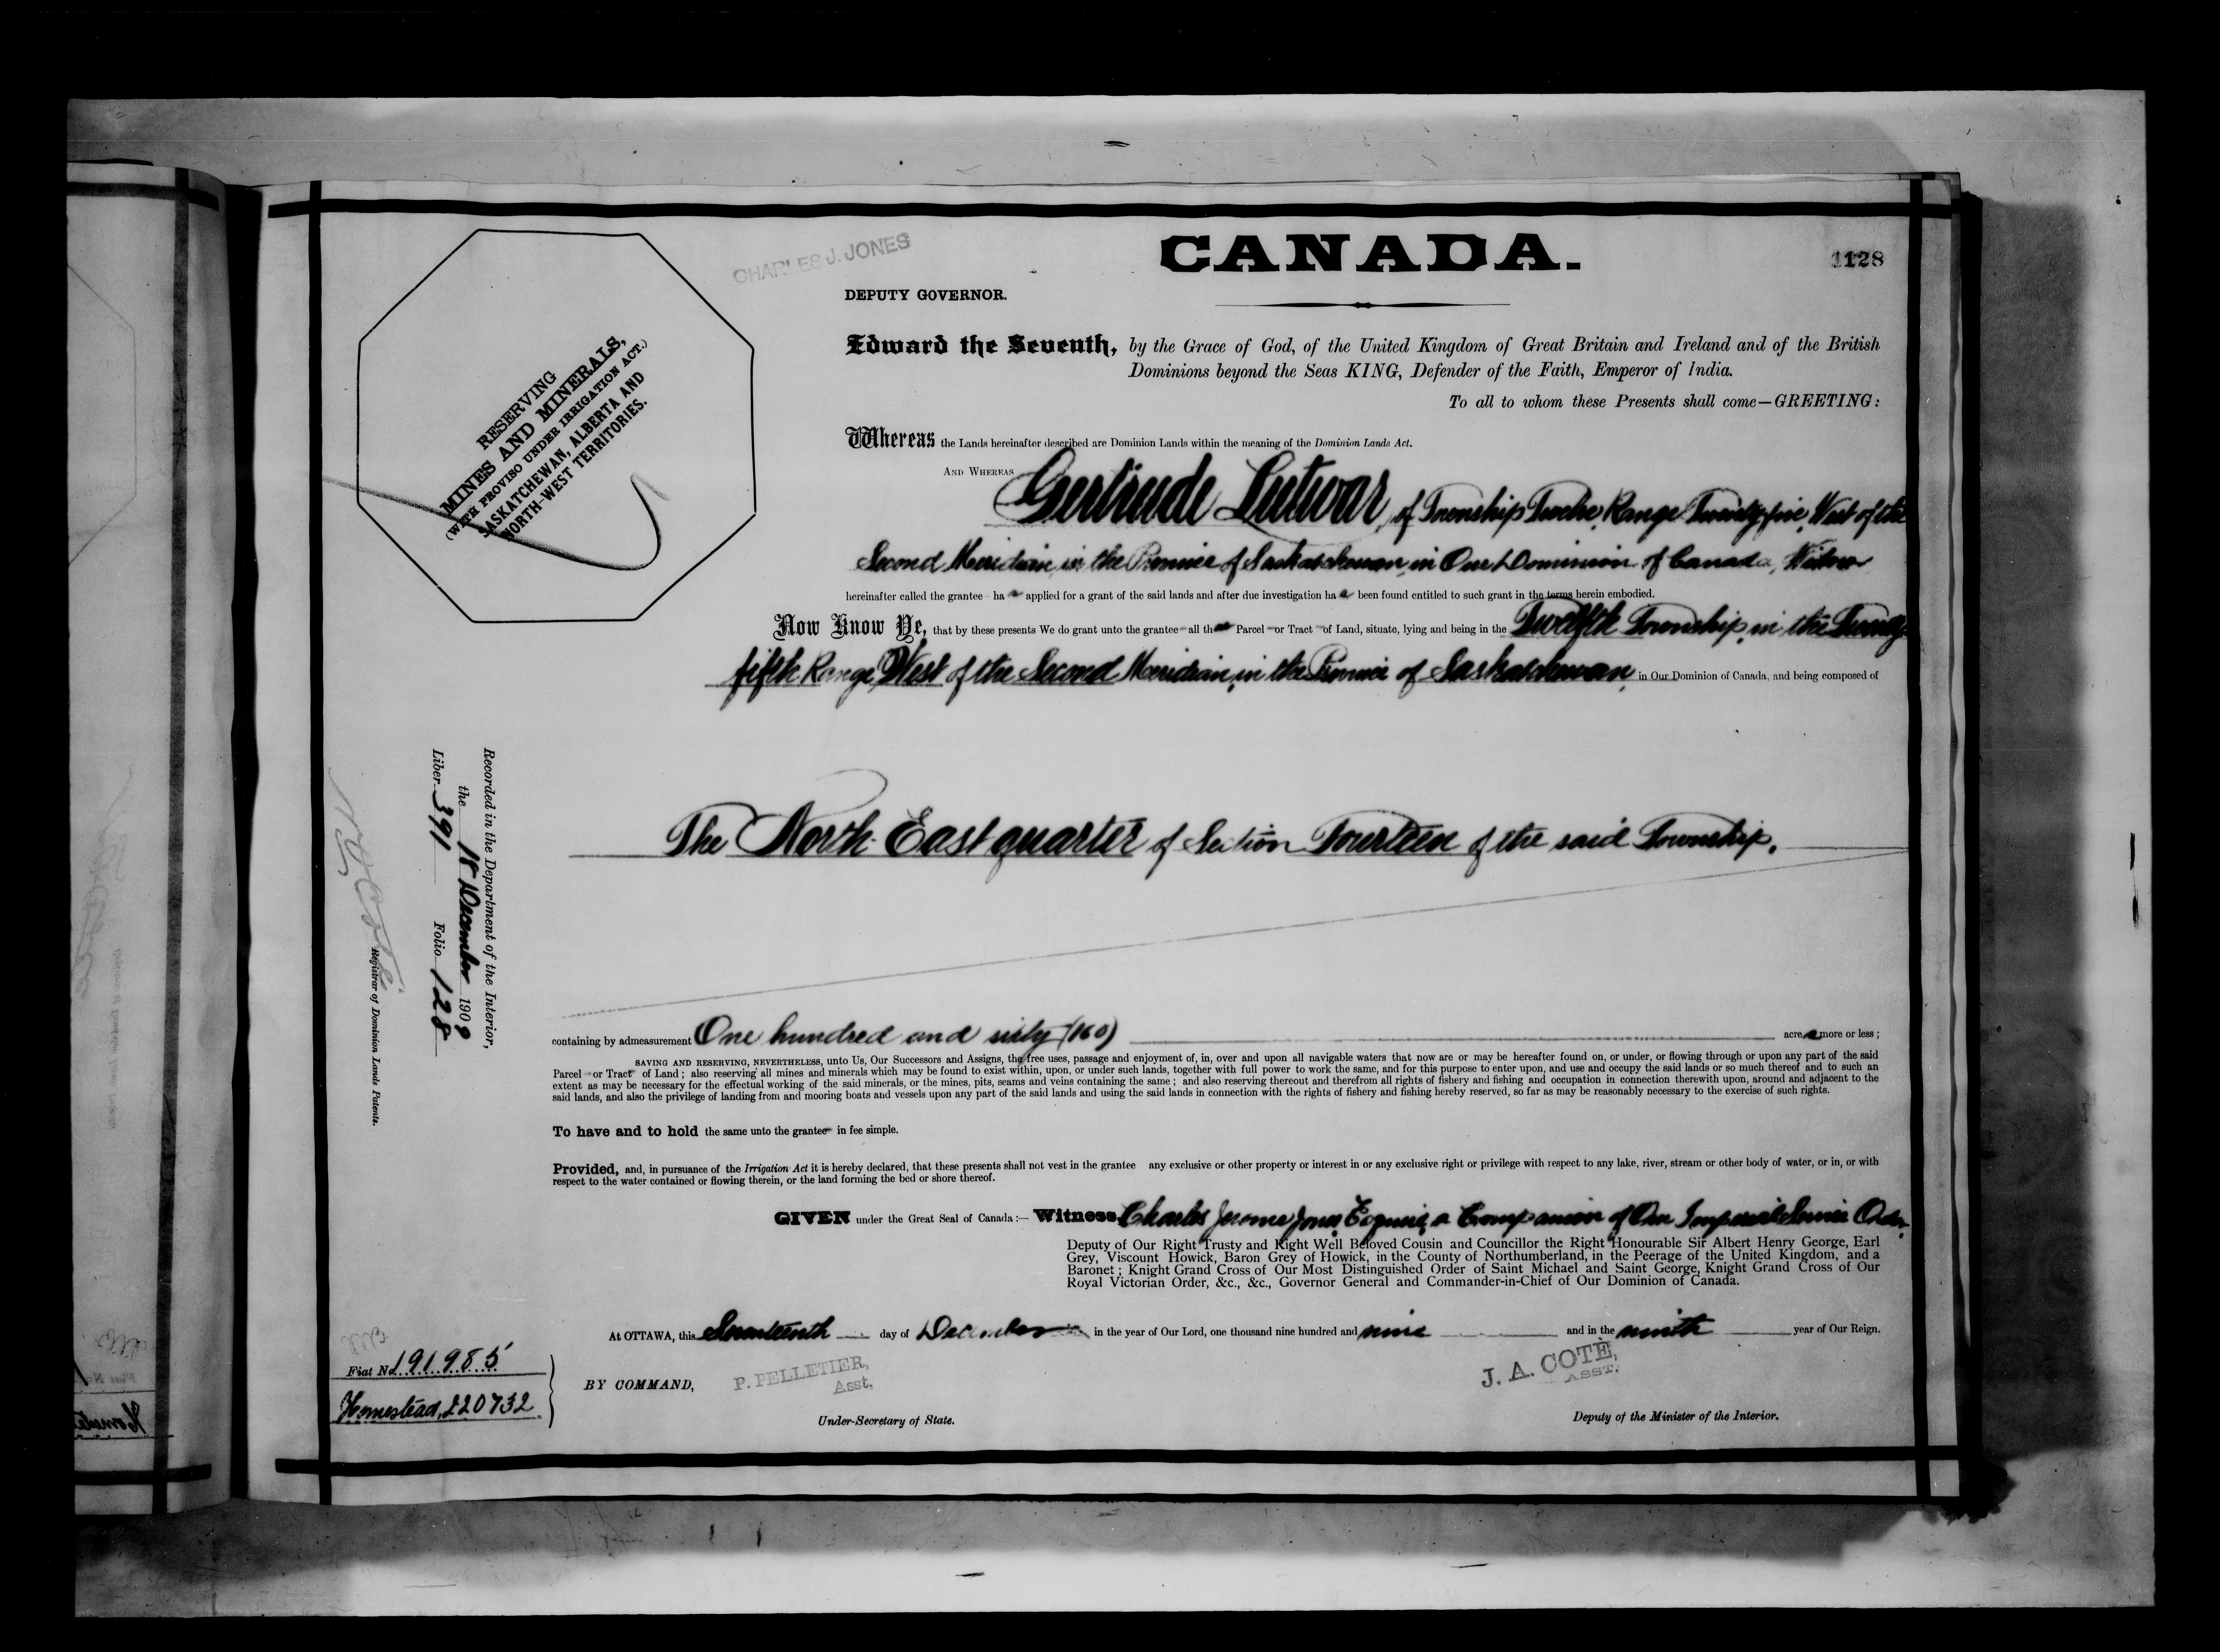 CANADA.
1128
CHARLES J. JONES
DEPUTY GOVERNOR.
RESERVING
MINES AND MINERALS,
(WITH PROVISO UNDER IRRIGATION ACT.)
SASKATCHEWAN, ALBERTA AND
NORTH-WEST TERRITORIES.
Edward the Seventh, by the Grace of God, of the United Kingdom of Great Britain and Ireland and of the British
Dominions beyond the Seas KING, Defender of the Faith, Emperor of India.
To all to whom these Presents shall come—GREETING:
Whereas the Lands hereinafter described are Dominion Lands within the meaning of the Dominion Lands Act.
AND WHEREAS Gertrude Lutwar, of Township Twelve, Range Twenty-five, West of the
Second Meridian, in the Province of Saskatchewan, in Our Dominion of Canada, Widow
hereinafter called the grantee has applied for a grant of the said lands and after due investigation has been found entitled to such grant in the terms herein embodied.
Now Know Ye, that by these presents We do grant unto the grantee all that Parcel or Tract of Land, situate, lying and being in the Twelfth Township, in the Twenty-
fifth Range, West of the Second Meridian, in the Province of Saskatchewan, in Our Dominion of Canada, and being composed of
The North East quarter of Section Fourteen of the said Township.
Recorded in the Department of the Interior,
the 18 December 1909
Liber 391 Folio 128
N. O. Coté
Registrar of Dominion Lands Patents.
containing by admeasurement One hundred and sixty (160) acres more or less;
SAVING AND RESERVING, NEVERTHELESS, unto Us, Our Successors and Assigns, the free uses, passage and enjoyment of, in, over and upon all navigable waters that now are or may be hereafter found on, or under, or flowing through or upon any part of the said
Parcel or Tract of Land; also reserving all mines and minerals which may be found to exist within, upon, or under such lands, together with full power to work the same, and for this purpose to enter upon, and use and occupy the said lands or so much thereof and to such an
extent as may be necessary for the effectual working of the said minerals, or the mines, pits, seams and veins containing the same; and also reserving thereout and therefrom all rights of fishery and fishing and occupation in connection therewith upon, around and adjacent to the
said lands, and also the privilege of landing from and mooring boats and vessels upon any part of the said lands and using the said lands in connection with the rights of fishery and fishing hereby reserved, so far as may be reasonably necessary to the exercise of such rights.
To have and to hold the same unto the grantee in fee simple.
Provided, and, in pursuance of the Irrigation Act it is hereby declared, that these presents shall not vest in the grantee any exclusive or other property or interest in or any exclusive right or privilege with respect to any lake, river, stream or other body of water, or in, or with
respect to the water contained or flowing therein, or the land forming the bed or shore thereof.
GIVEN under the Great Seal of Canada:— Witness Charles Jerome Jones Esquire, a Companion of Our Imperial Service Order,
Deputy of Our Right Trusty and Right Well Beloved Cousin and Councillor the Right Honourable Sir Albert Henry George, Earl
Grey, Viscount Howick, Baron Grey of Howick, in the County of Northumberland, in the Peerage of the United Kingdom, and a
Baronet; Knight Grand Cross of Our Most Distinguished Order of Saint Michael and Saint George, Knight Grand Cross of Our
Royal Victorian Order, &c., &c., Governor General and Commander-in-Chief of Our Dominion of Canada.
At OTTAWA, this Seventeenth day of December in the year of Our Lord, one thousand nine hundred and nine and in the ninth year of Our Reign.
Fiat No. 191985
Homestead, 220732
BY COMMAND,
P. PELLETIER,
Asst.
Under-Secretary of State.
J. A. COTÉ,
ASST.
Deputy of the Minister of the Interior.